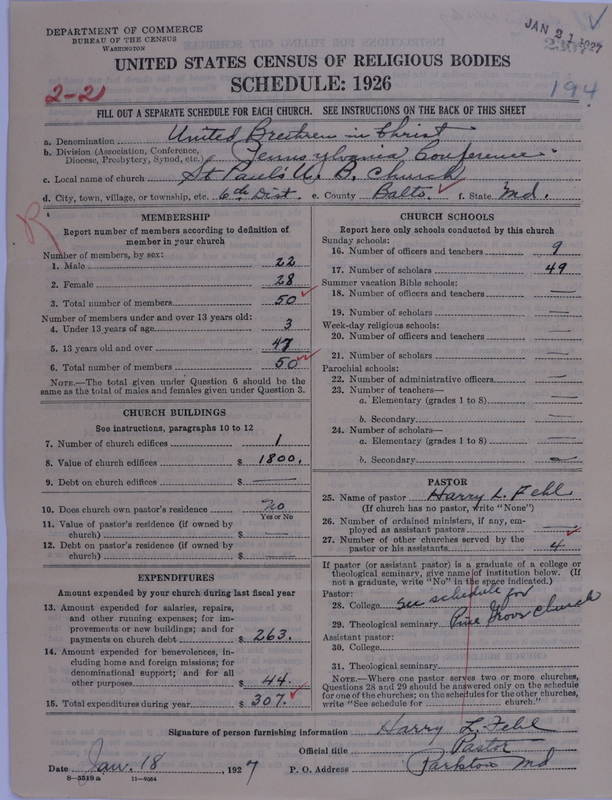 DEPARTMENT OF COMMERCE
BUREAU OF THE CENSUS
WASHINGTON
JAN 21 1927
UNITED STATES CENSUS OF RELIGIOUS BODIES
SCHEDULE: 1926
2-21
194
FILL OUT A SEPARATE SCHEDULE FOR EACH CHURCH. SEE INSTRUCTIONS ON THE BACK OF THIS SHEET
a. Denomination United Brethren in Christ
b. Division (Association, Conference, Diocese, Presbytery, Synod, etc.) Pennsylvania Conference
c. Local name of church St Pauls U. B. Church
d. City, town, village, or township, etc. 6th Dist. e. County Balto. f. State Md.
R
MEMBERSHIP
Report number of members according to definition of
member in your church
Number of members, by sex:
1. Male 22
2. Female 28
3. Total number of members 50
Number of members under and over 13 years old:
4. Under 13 years of age 3
5. 13 years old and over 47
6. Total number of members 50
NOTE.—The total given under Question 6 should be the
same as the total of males and females given under Question 3.
CHURCH BUILDINGS
See instructions, paragraphs 10 to 12
7. Number of church edifices 1
8. Value of church edifices $ 1800.
9. Debt on church edifices $ —
10. Does church own pastor's residence No
Yes or No
11. Value of pastor's residence (if owned by
church) $ —
12. Debt on pastor's residence (if owned by
church) $ —
EXPENDITURES
Amount expended by your church during last fiscal year
13. Amount expended for salaries, repairs,
and other running expenses; for im-
provements or new buildings; and for
payments on church debt $ 263.
14. Amount expended for benevolences, in-
cluding home and foreign missions; for
denominational support; and for all
other purposes $ 44.
15. Total expenditures during year $ 307.
CHURCH SCHOOLS
Report here only schools conducted by this church
Sunday schools:
16. Number of officers and teachers 9
17. Number of scholars 49
Summer vacation Bible schools:
18. Number of officers and teachers —
19. Number of scholars —
Week-day religious schools:
20. Number of officers and teachers —
21. Number of scholars —
Parochial schools:
22. Number of administrative officers —
23. Number of teachers—
a. Elementary (grades 1 to 8) —
b. Secondary —
24. Number of scholars—
a. Elementary (grades 1 to 8) —
b. Secondary —
PASTOR
25. Name of pastor Harry L. Fehl
(If church has no pastor, write "None")
26. Number of ordained ministers, if any, em-
ployed as assistant pastors —
27. Number of other churches served by the
pastor or his assistants 4
If pastor (or assistant pastor) is a graduate of a college or
theological seminary, give name of institution below. (If
not a graduate, write "No" in the space indicated.)
Pastor:
28. College see schedule for
29. Theological seminary Pine Grove Church
Assistant pastor:
30. College
31. Theological seminary
NOTE.—Where one pastor serves two or more churches,
Questions 28 and 29 should be answered only on the schedule
for one of the churches; on the schedules for the other churches,
write "See schedule for church."
Signature of person furnishing information Harry L. Fehl
Official title Pastor
Date Jan. 18, 1927 P. O. Address Parkton Md
8—5518a 11—9354